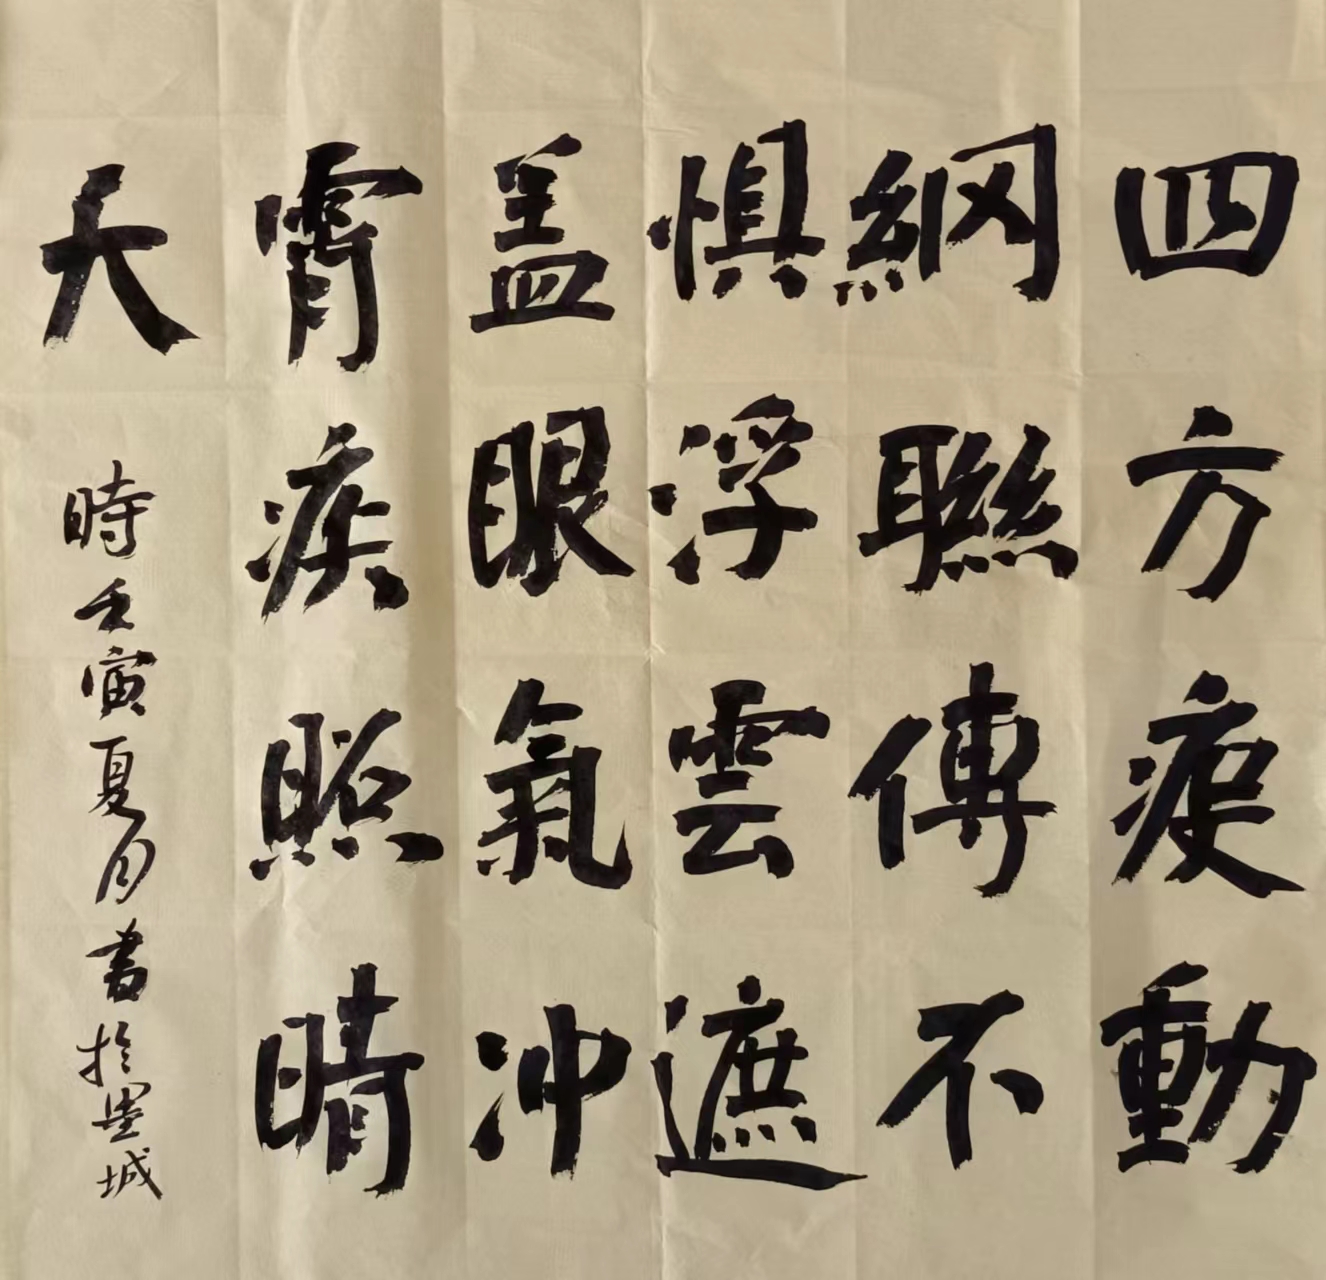 四方疫動
網聯傳不
惧浮雲遮
盖眼氣冲
霄疾照晴
天
時壬寅夏月書於墨城